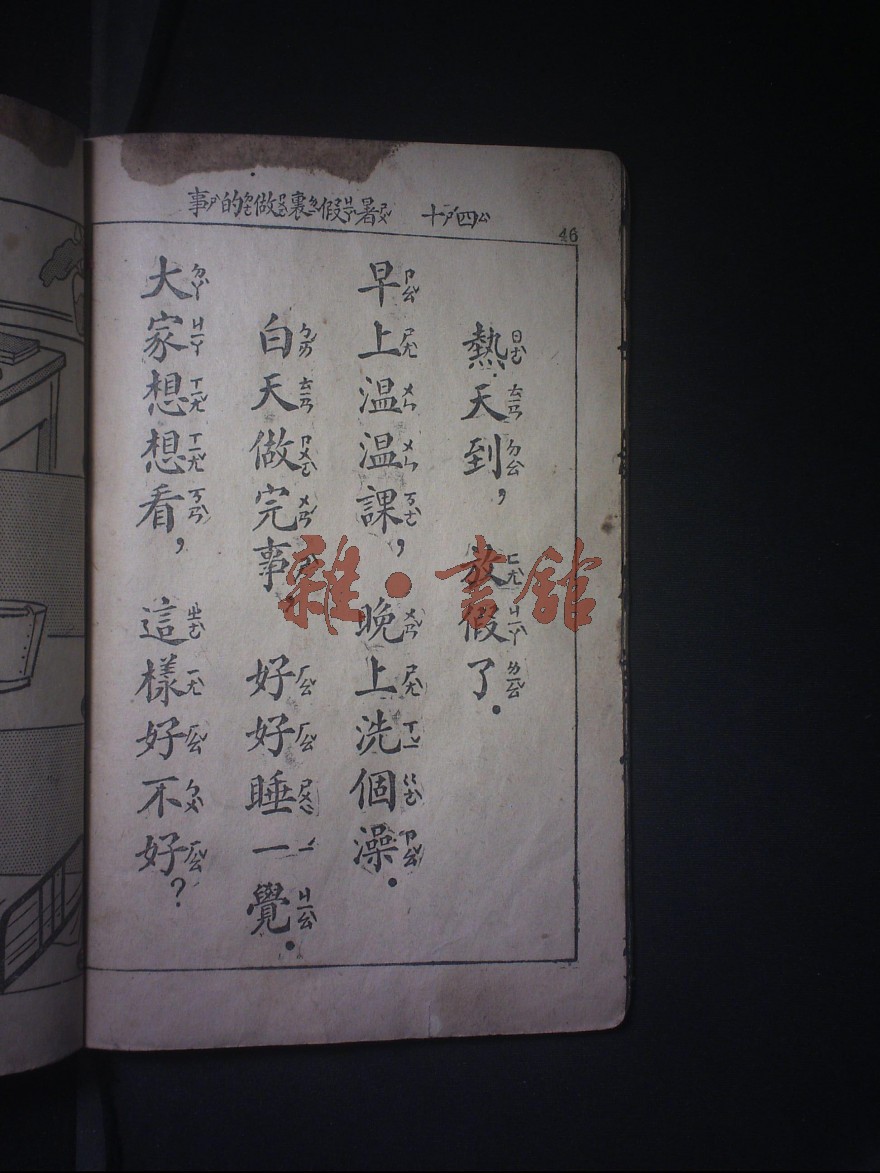 46
四十 暑假裏做的事
熱天到，放假了．
早上溫溫課，晚上洗個澡．
白天做完事，好好睡一覺．
大家想想看，這樣好不好？
雜·書館